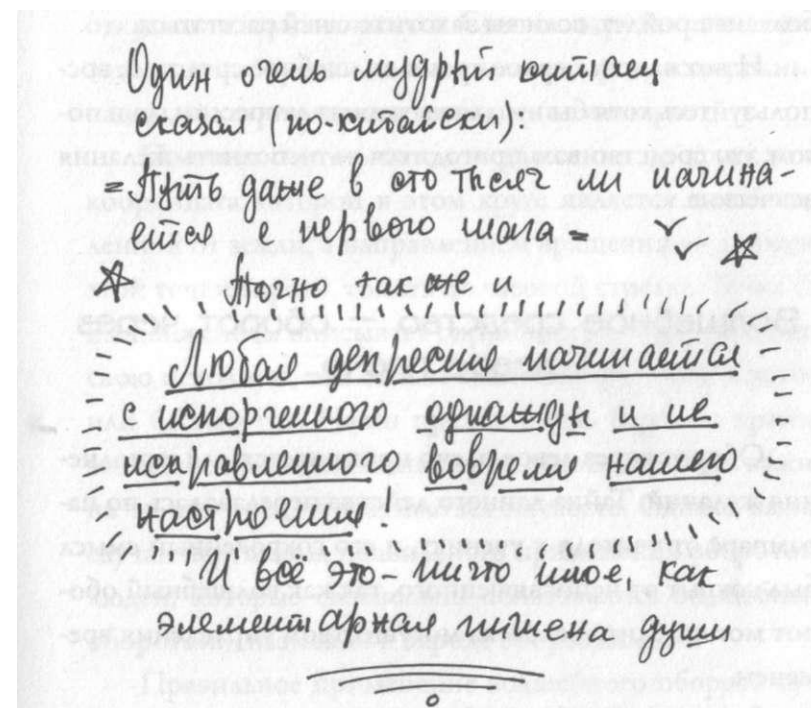 Один очень мудрый китаец
сказал (по-китайски):
=Путь даже в сто тысяч ли начина-
ется с первого шага=
Точно так же и
Любая депрессия начинается
с испорченного однажды и не
исправленного вовремя нашего
настроения.
И всё это - ничто иное, как
элементарная гигиена души